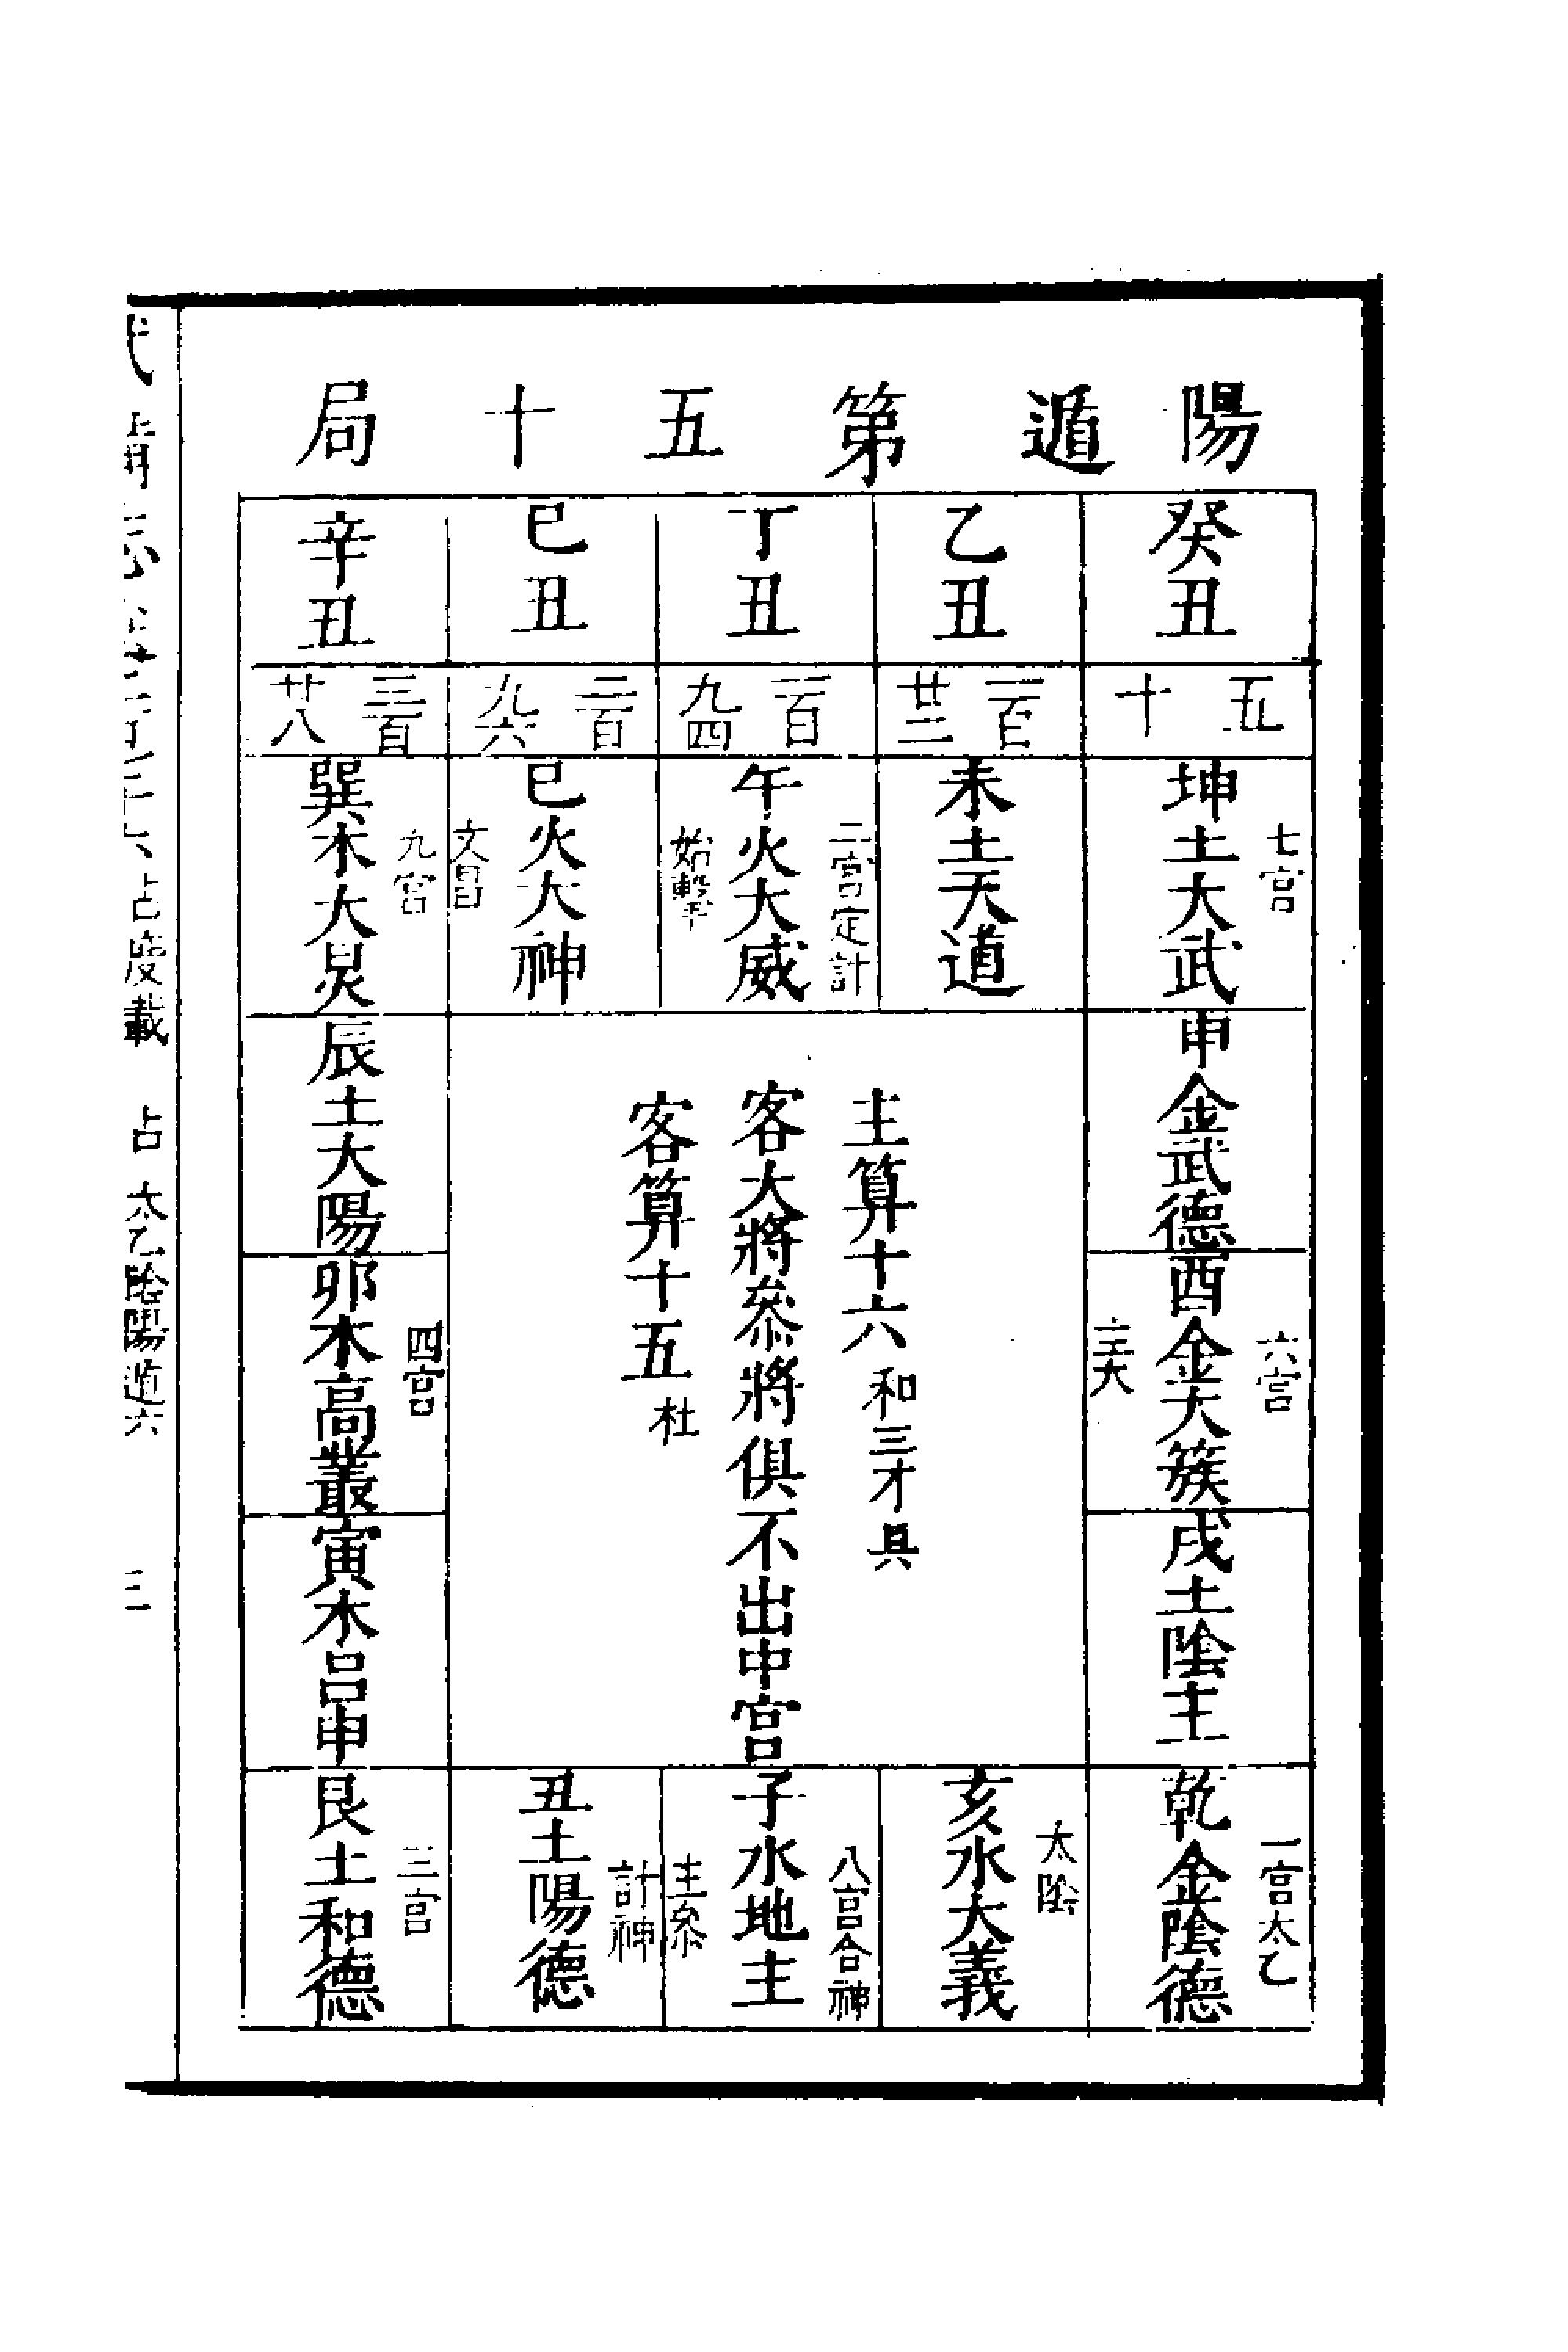 陽遁第五十局
癸丑
乙丑
丁丑
己丑
辛丑
五十
一百廿二
一百九四
二百九六
三百廿八
七宮
坤土大武
未土天道
二宮定計
午火大威
始擊
巳火大神
文昌
九宮
巽木大炅
申金武德
六宮
酉金大簇
主大
戌土陰主
主算十六和三才具
客大將叅將俱不出中宮
客算十五杜
辰土大陽
四宮
卯木高叢
寅木呂申
一宮太乙
乾金陰德
太陰
亥水大義
八宮合神
子水地主
主叅
計神
丑土陽德
三宮
艮土和德
占度載 占 太乙陰陽遁六